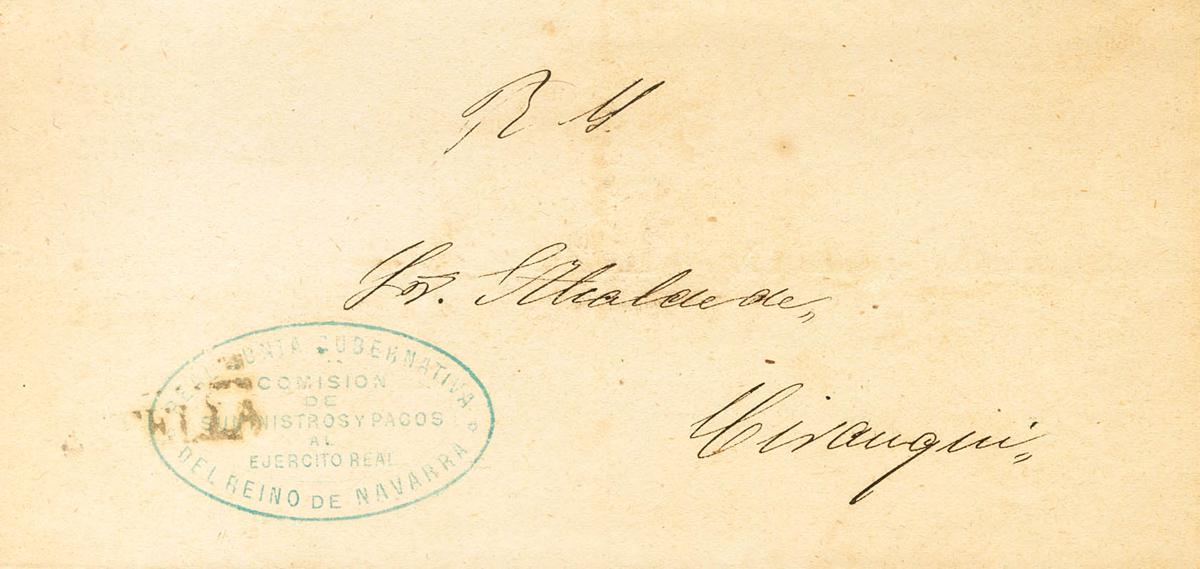 R. S.
Sor. Alcalde de„
Cirauqui„
REAL JUNTA GUBERNATIVA
COMISION
DE
SUMINISTROS Y PAGOS
AL
EJERCITO REAL
DEL REINO DE NAVARRA
ELLA